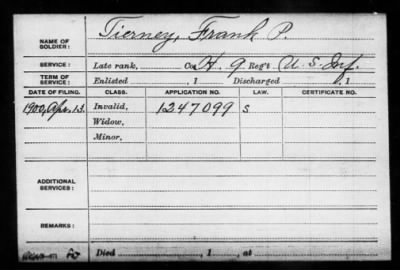 NAME OF SOLDIER: Tierney, Frank P.
SERVICE: Late rank, Co. H, 9 Reg't U. S. Inf.
TERM OF SERVICE: Enlisted , 1 Discharged , 1
DATE OF FILING. CLASS. APPLICATION NO. LAW. CERTIFICATE NO.
1900, Apr. 13. Invalid, 1247099 S
Widow,
Minor,
ADDITIONAL SERVICES:
REMARKS:
Died , 1 , at